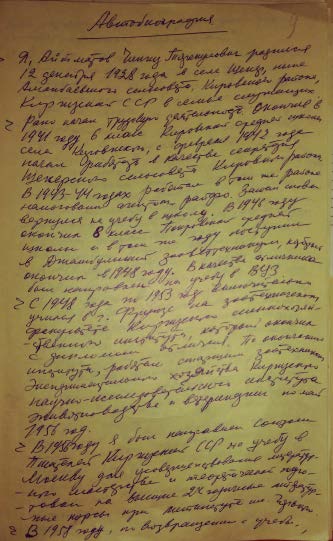 Автобиография
Я, Айтматов Чингиз Торекулович родился
12 декабря 1928 года в селе Шекер, ныне
сельсовета, Кировского района,
Киргизская ССР в семье служащих
Рано начал трудовую деятельность. Окончив в
1941 году 6 класс Кировской средней школы
села с февраля 1943 года
начал работать в качестве секретаря
Шекерского сельсовета Кировского района
В 1943-44 годах работал в том же районе
налоговым агентом райфо. Затем снова
вернулся на учебу в школу. В 1946 году
окончил 8 класс Покровской средней
школы и в том же году поступил
в Джамбулский зооветтехникум, который
окончил в 1948 году. В качестве отличника
был направлен на учебу в ВУЗ
С 1948 года по 1953 год включительно
учился в г. Фрунзе на зоотехническом
факультете Киргизского сельскохозяй-
ственного института, который окончил
с дипломом отличия. По окончании
института, работал старшим зоотехником
экспериментального хозяйства Киргизского
научно-исследовательского института
животноводства и ветеринарии по май
1956 год.
В 1956 году я был направлен Союзом
Писателей Киргизской ССР на учебу в
Москву для усовершенствования литератур-
ного мастерства и теоретической подго-
товки на высшие 2х годичные литератур-
ные курсы при институте им. Горького
В 1958 году, по возвращении с учебы,